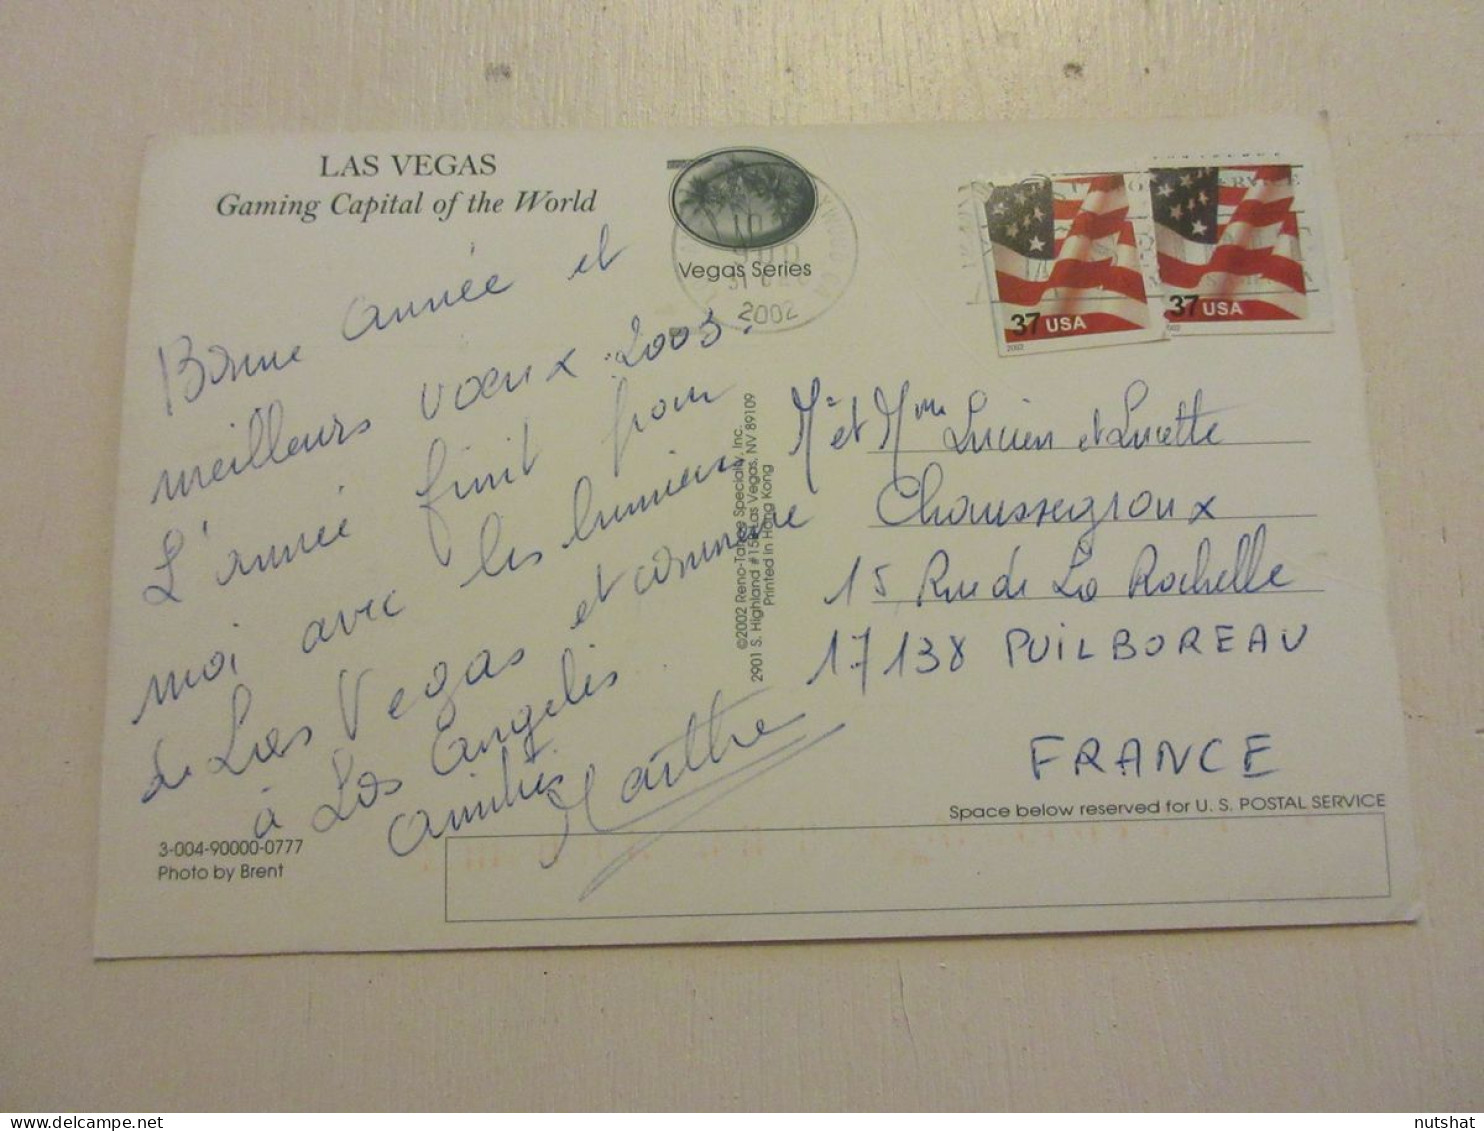 LAS VEGAS
Gaming Capital of the World
Vegas Series
31 DEC
2002
37 USA
2002
37 USA
2002
Bonne année et
meilleurs voeux 2003.
L'année finit pour
moi avec les lumières
de Las Vegas et commence
à Los Angelès.
Amitiés
Marthe
©2002 Reno-Tahoe Specialty, Inc.
2901 S. Highland Las Vegas, NV 89109
Printed in Hong Kong
Mr et Mme Lucien et Lucette
Chaussegroux
15 Rue de La Rochelle
17138 PUILBOREAU
FRANCE
Space below reserved for U. S. POSTAL SERVICE
3-004-90000-0777
Photo by Brent
nutshat